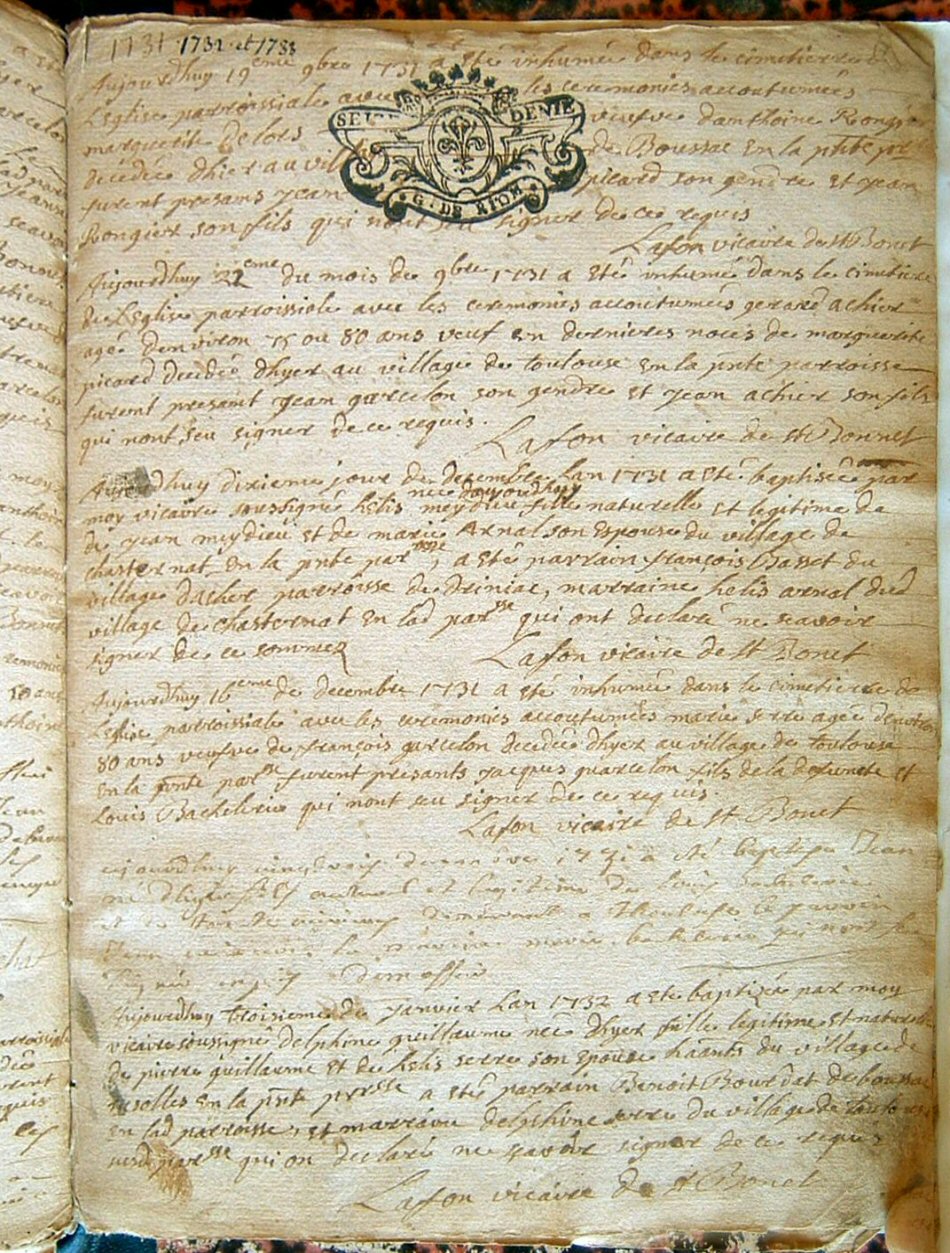 1731 1732 et 1733
Aujourdhuy 19eme 9bre 1731 a eté inhumée dans le cimetierre de
Leglise parroissiale avec les ceremonies accoutumées
SEIZE DENIE
marguerite Delors veufve danthoine Rongier
decedée dhier au village de Boussac en la pnte
G. DE RIOM
furent presans Jean picard son gendre et Jean
Rongier son fils qui nont seu signer de ce requis
Lafon vicaire de St Bonet
Aujourdhuy 22eme du mois de 9bre 1731 a eté inhumé dans le cimetiere
de Leglise parroissiale avec les ceremonies accoutumées gerard achier
agé denviron 75 ou 80 ans veuf en dernieres noces de marguerite
picard decedé dhyer au village de toulouse en la pnte parroisse
furent presant Jean garcelon son gendre et Jean achier son fils
qui nont seu signer de ce requis.
Lafon vicaire de St Bonnet
Aujourdhuy dixieme jour de decembre Lan 1731 a eté baptisée par
née daujourdhuy
moy vicaire soussigné helis meydieu fille naturelle et legitime de
de Jean meydieu et de marie Arnal son epouse du village de
chasternat en la pnte parsse, a eté parrain françois Basset du
village dacher parroisse de Driniac, marraine helis arnal dud
village de chasternat en lad parsse qui ont declaré ne scavoir
signer de ce sommez
Lafon vicaire de St Bonet
Aujourdhuy 16eme de decembre 1731 a eté inhumée dans le cimetierre de
Leglise parroissiale avec les ceremonies accoutumées marie serre agée denviron
80 ans veufve de françois garcelon decedée dhyer au village de toulouse
en la pnte parsse furent presants Jacques guarcelon fils de la defuncte et
Louis Bachelerie qui nont seu signer de ce requis.
Lafon vicaire de St Bonet
ajourdhuy 1731 a eté baptise Jean
né dhyer fils naturel et legitime de louis
et de
la maraine marie qui nont seu
signer
Aujourdhuy troisieme de Janvier Lan 1732 a eté baptizée par moy
vicaire soussigné delphine guillaume née dhyer fille legitime et naturelle
de pierre guillaume et de helis serre son epouse habants du village de
nesolles en la pnte prrsse a eté parrain Benoit Bourdat de boussac
en lad parroisse, et marraine delphine serre du village de toulouse
susd parsse qui on declaré ne scavoir signer de ce requis
Lafon vicaire de St Bonet